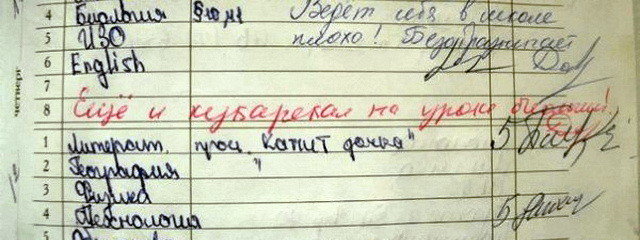 4 Биология §10 №1 Ведет себя в школе
5 ИЗО плохо! Безобразничает
6 English
четверг
7
8 Ещё и кукарекал на уроке
1 Литерат. проч. "Капит дочка" 5
2 География "
3 Физика
4 Технология 5
5